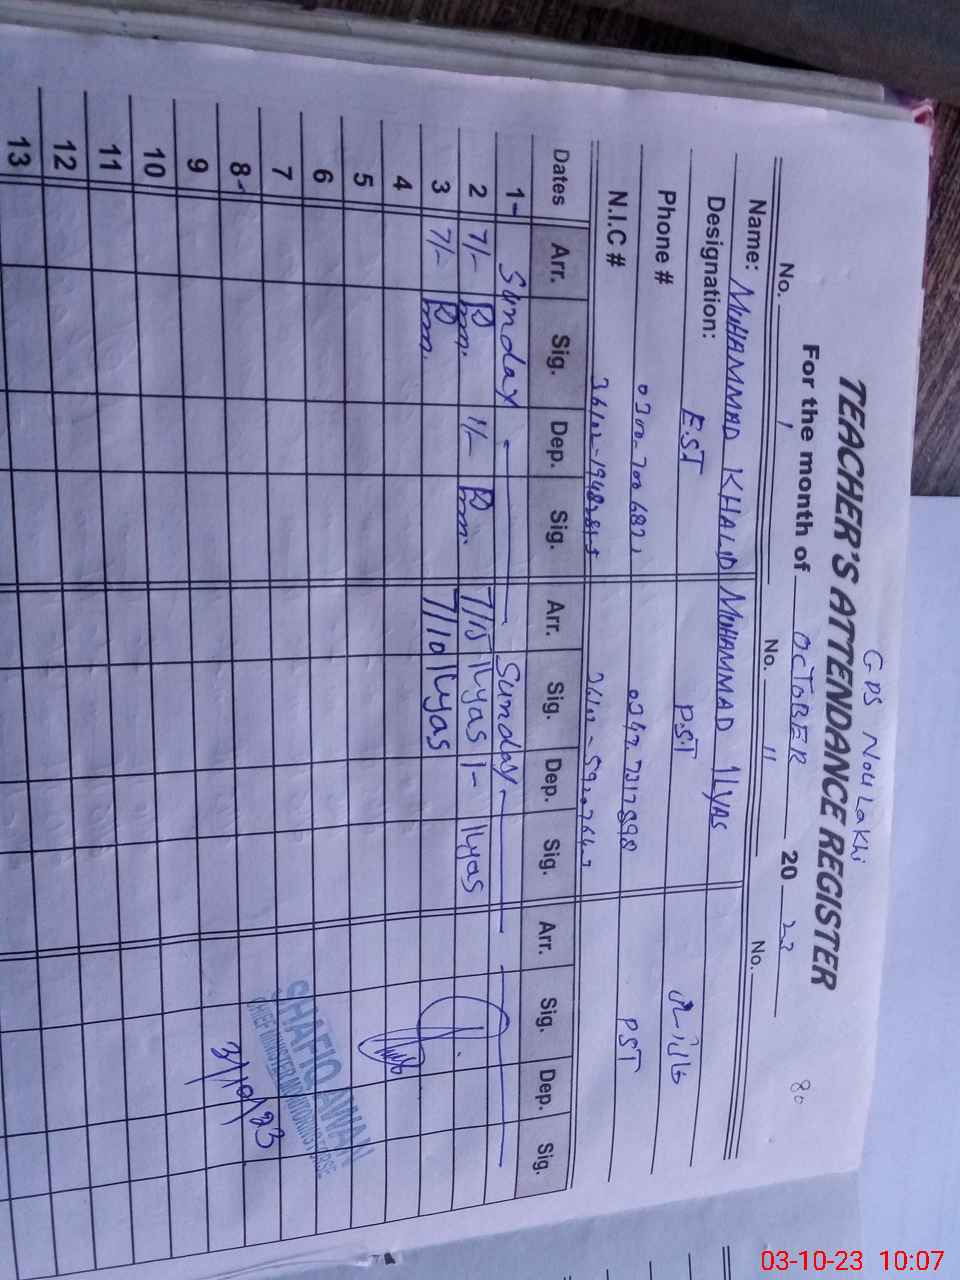 GPS Noulakhi
80
TEACHER'S ATTENDANCE REGISTER
For the month of OCTOBER 20 23
No. 1 No. 11 No.
Name: MUHAMMAD KHALID MUHAMMAD ILYAS
Designation: E.ST P.ST
Phone # 0347.7317898 PST
N.I.C #
Dates Arr. Sig. Dep. Sig. Arr. Sig. Dep. Sig. Arr. Sig. Dep. Sig.
1- Sunday Sunday
2 7/- 1/- 7/15 Ilyas 1- Ilyas
3 7/- 7/10 Ilyas
4
5
6
7
8-
9
10
11
12
13
SHAFIQ AWAN
CHIEF MINISTER MONITORING FORCE
3/10/23
03-10-23 10:07